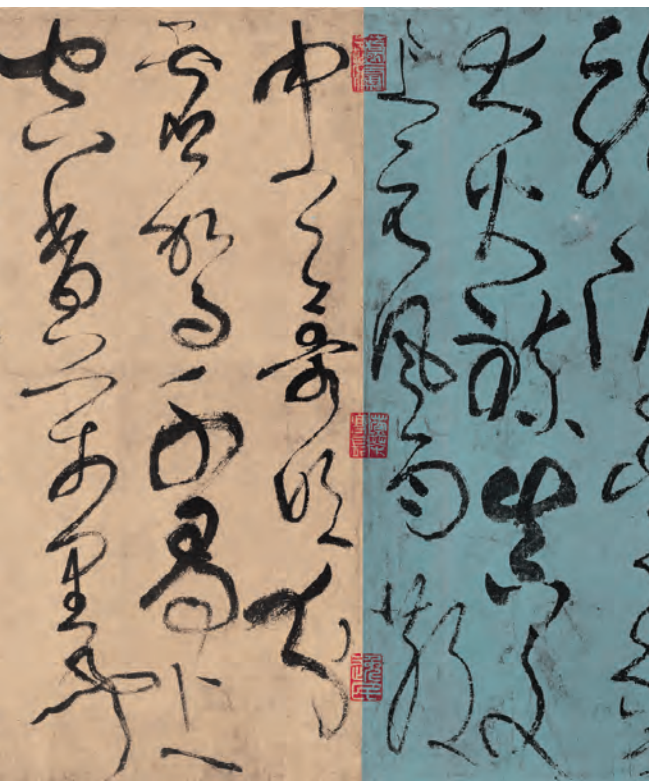 大火煉真文
上元風雨散
中天哥吹分
虛駕千尋上
空香萬里聞